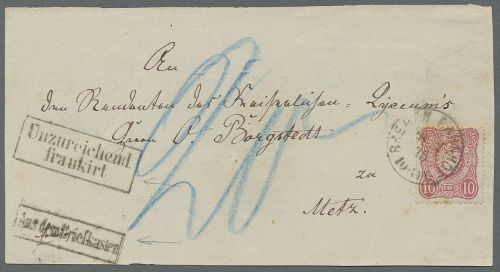 An
den Rendanten des Kaiserlichen Lyceum's
Herrn O. Borgstedt
zu
Metz.
Unzureichend
frankirt
Aus dem Briefkasten
20
10 10